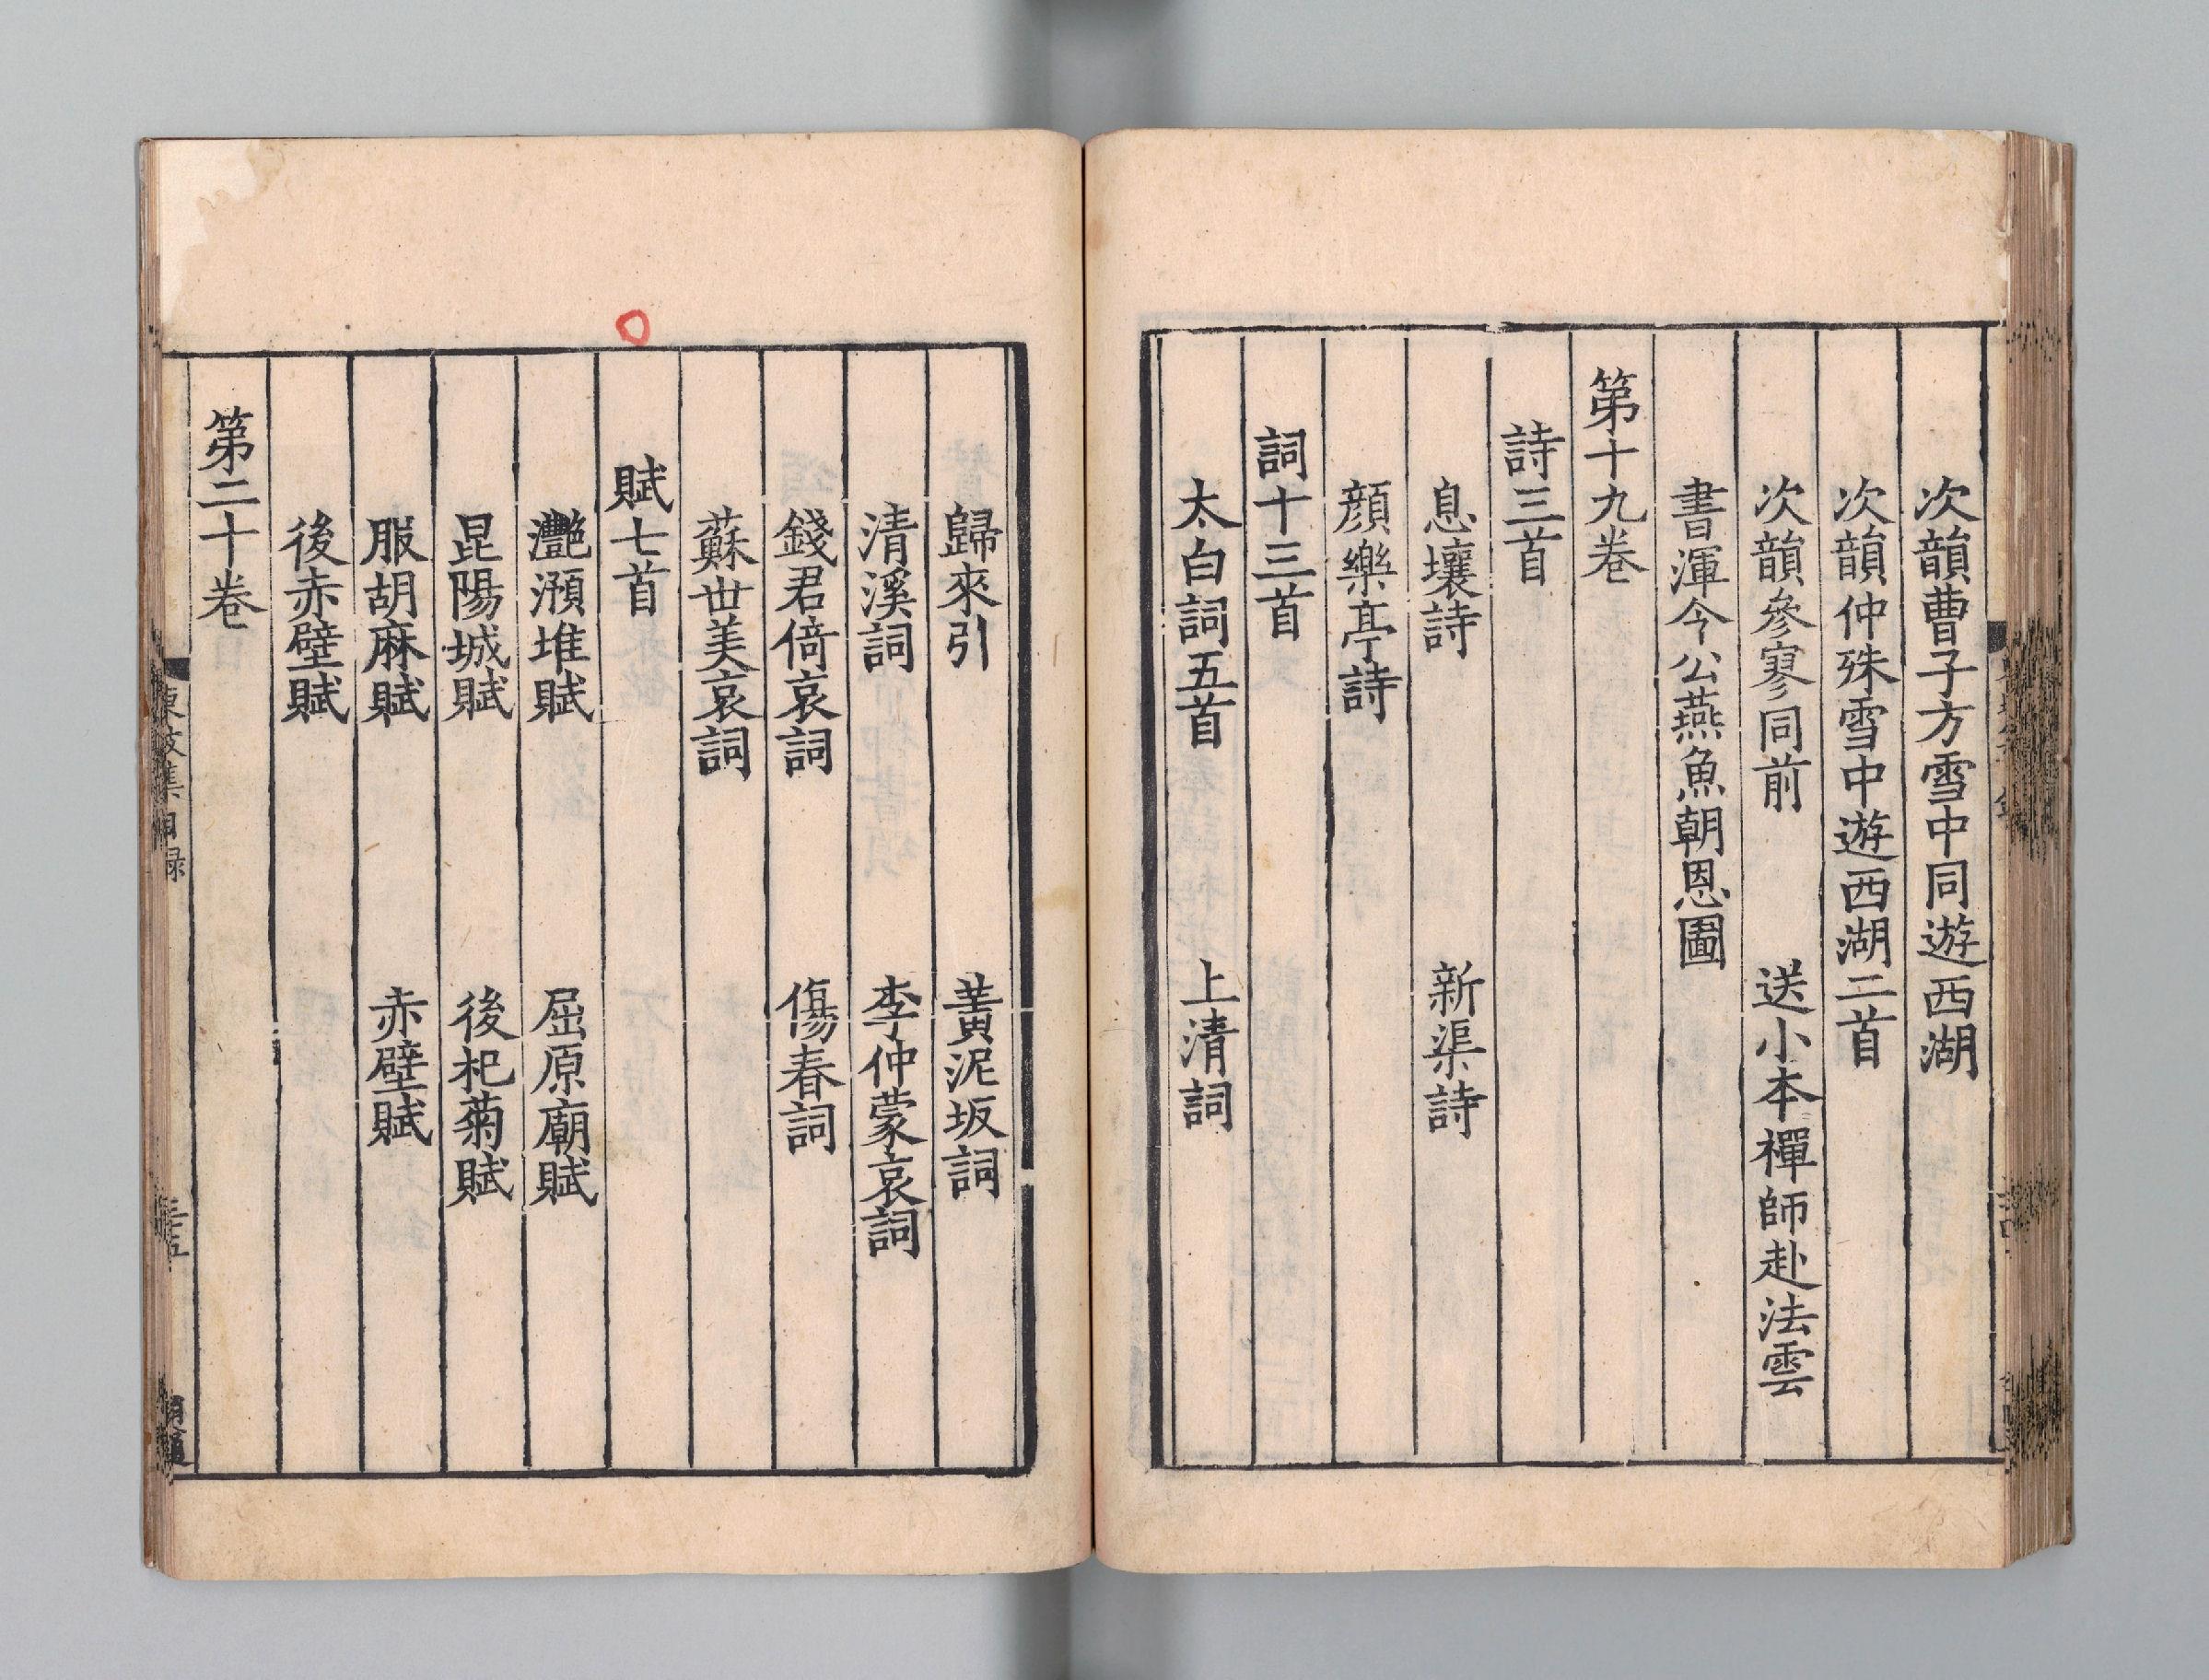 次韻曹子方雪中同遊西湖
次韻仲殊雪中遊西湖二首
次韻參寥同前　送小本禪師赴法雲
書渾令公燕魚朝恩圖
第十九卷
詩三首
息壤詩　新渠詩
顏樂亭詩
詞十三首
太白詞五首　上清詞
歸來引　黃泥坂詞
清溪詞　李仲蒙哀詞
錢君倚哀詞　傷春詞
蘇世美哀詞
賦七首
灩澦堆賦　屈原廟賦
昆陽城賦　後杞菊賦
服胡麻賦　赤壁賦
後赤壁賦
第二十卷
東坡集目録